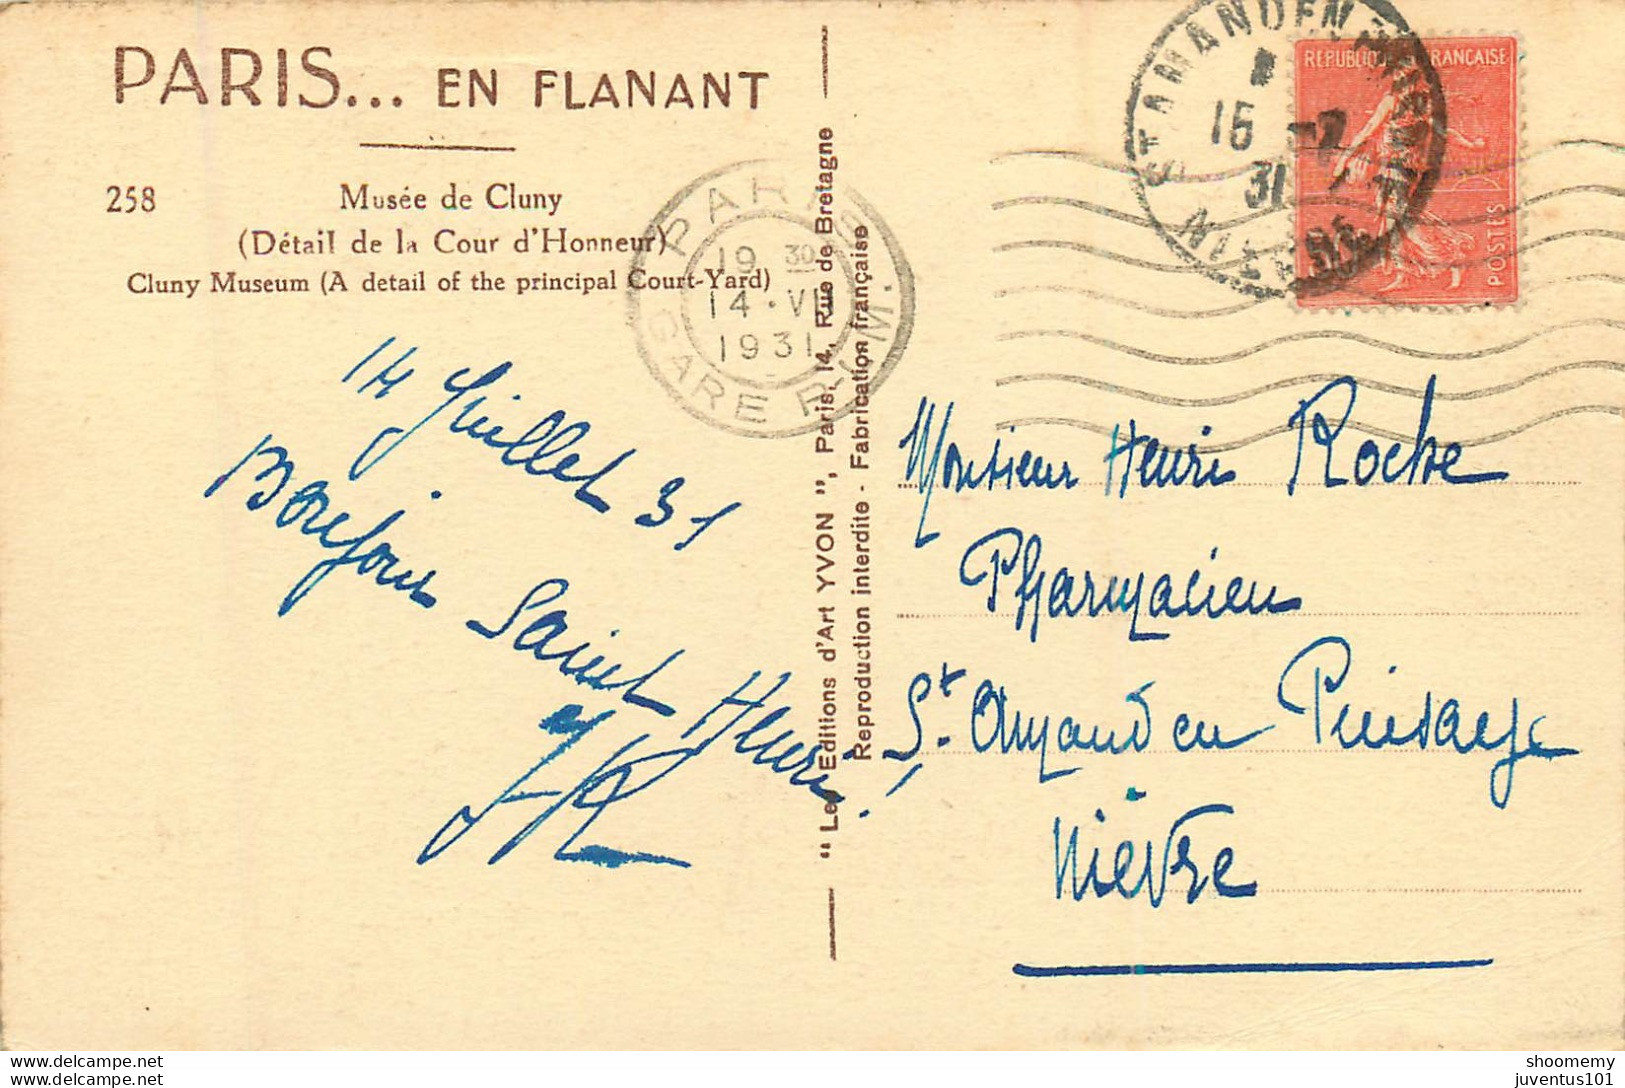 PARIS... EN FLANANT
258 Musée de Cluny
(Détail de la Cour d'Honneur)
Cluny Museum (A detail of the principal Court-Yard)
PARIS
19 30
14 · VII
1931
GARE P.L.M.
14 Juillet 31
Bonjour Saint Henri !
"Les Editions d'Art YVON", Paris, 14, Rue de Bretagne
Reproduction interdite - Fabrication française
ST AMAND EN PUISAYE
16 -7
31
NIEVRE
REPUBLIQUE FRANÇAISE
POSTES
Monsieur Henri Roche
Pharmacien
St Amand en Puisaye
Nièvre
shoomemy
juventus101